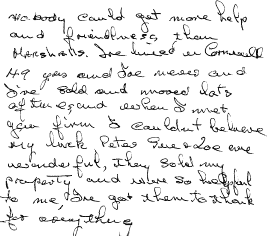 nobody could get more help
and friendliness, than
Marshalls. I've lived in Cornwall
49 yrs and I've moved and
I've sold and moved lots
of times and when I met
your firm I couldn't believe
my luck, Peter, Sue & Zoe are
wonderful, they sold my
property and were so helpful
to me, I've got them to thank
for everything